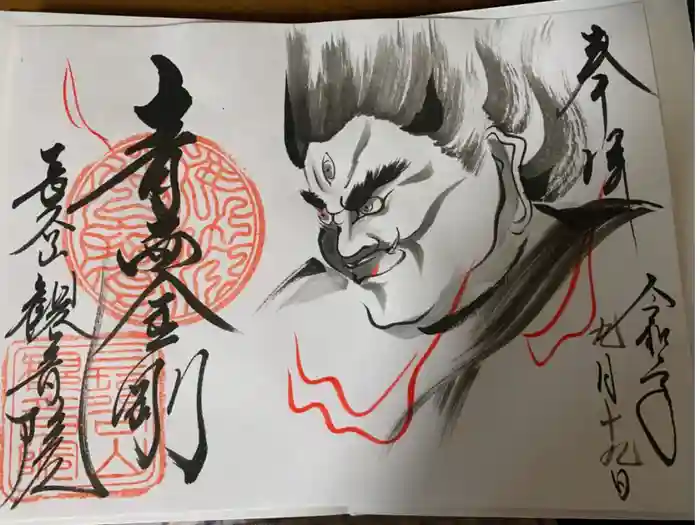 奉拝
令和二年
九月十九日
青面金剛
長谷山観音院